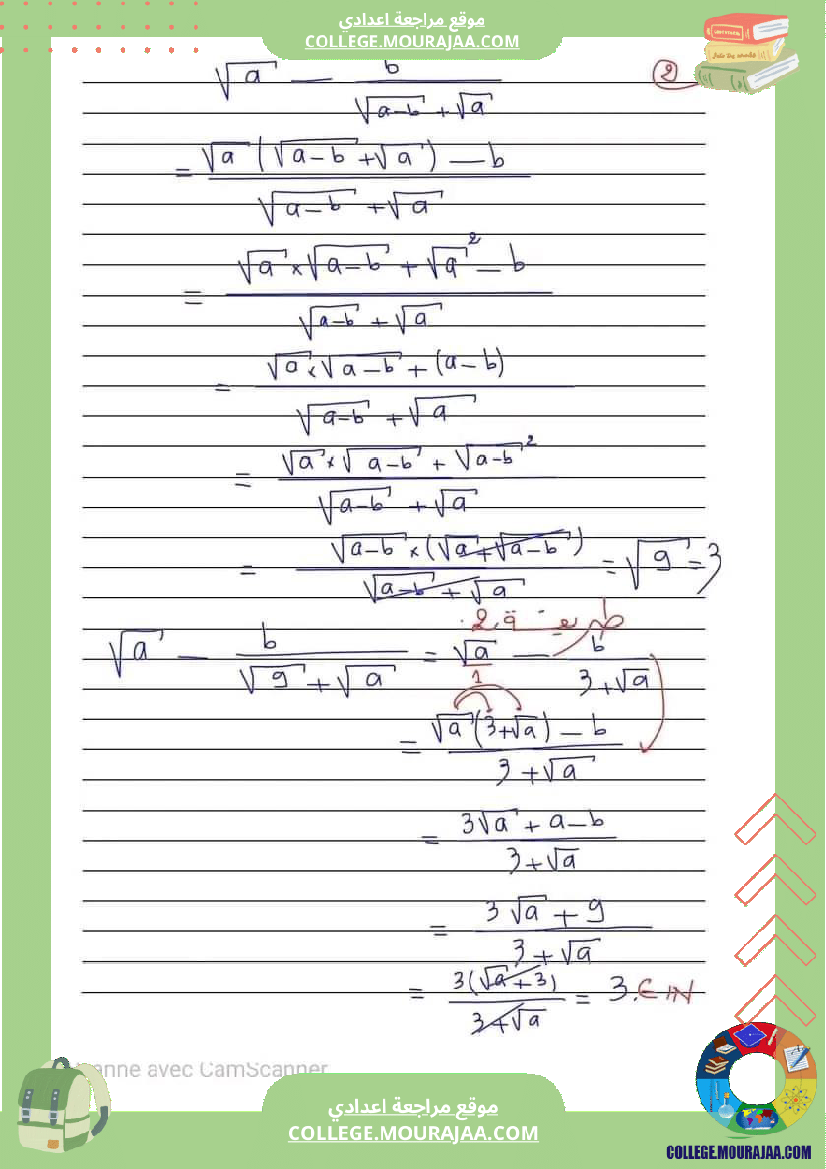 موقع مراجعة اعدادي
COLLEGE.MOURAJAA.COM
② √a − b/(√(a−b) + √a)
= (√a (√(a−b) + √a) − b)/(√(a−b) + √a)
= (√a × √(a−b) + √a² − b)/(√(a−b) + √a)
= (√a × √(a−b) + (a−b))/(√(a−b) + √a)
= (√a × √(a−b) + √(a−b)²)/(√(a−b) + √a)
= (√(a−b) × (√a + √(a−b)))/(√(a−b) + √a) = √9 = 3
طريقة 2.
√a − b/(√9 + √a) = √a/1 − b/(3 + √a)
= (√a (3 + √a) − b)/(3 + √a)
= (3√a + a − b)/(3 + √a)
= (3√a + 9)/(3 + √a)
= (3(√a + 3))/(3 + √a) = 3. ∈ IN
anne avec CamScanner
موقع مراجعة اعدادي
COLLEGE.MOURAJAA.COM
COLLEGE.MOURAJAA.COM